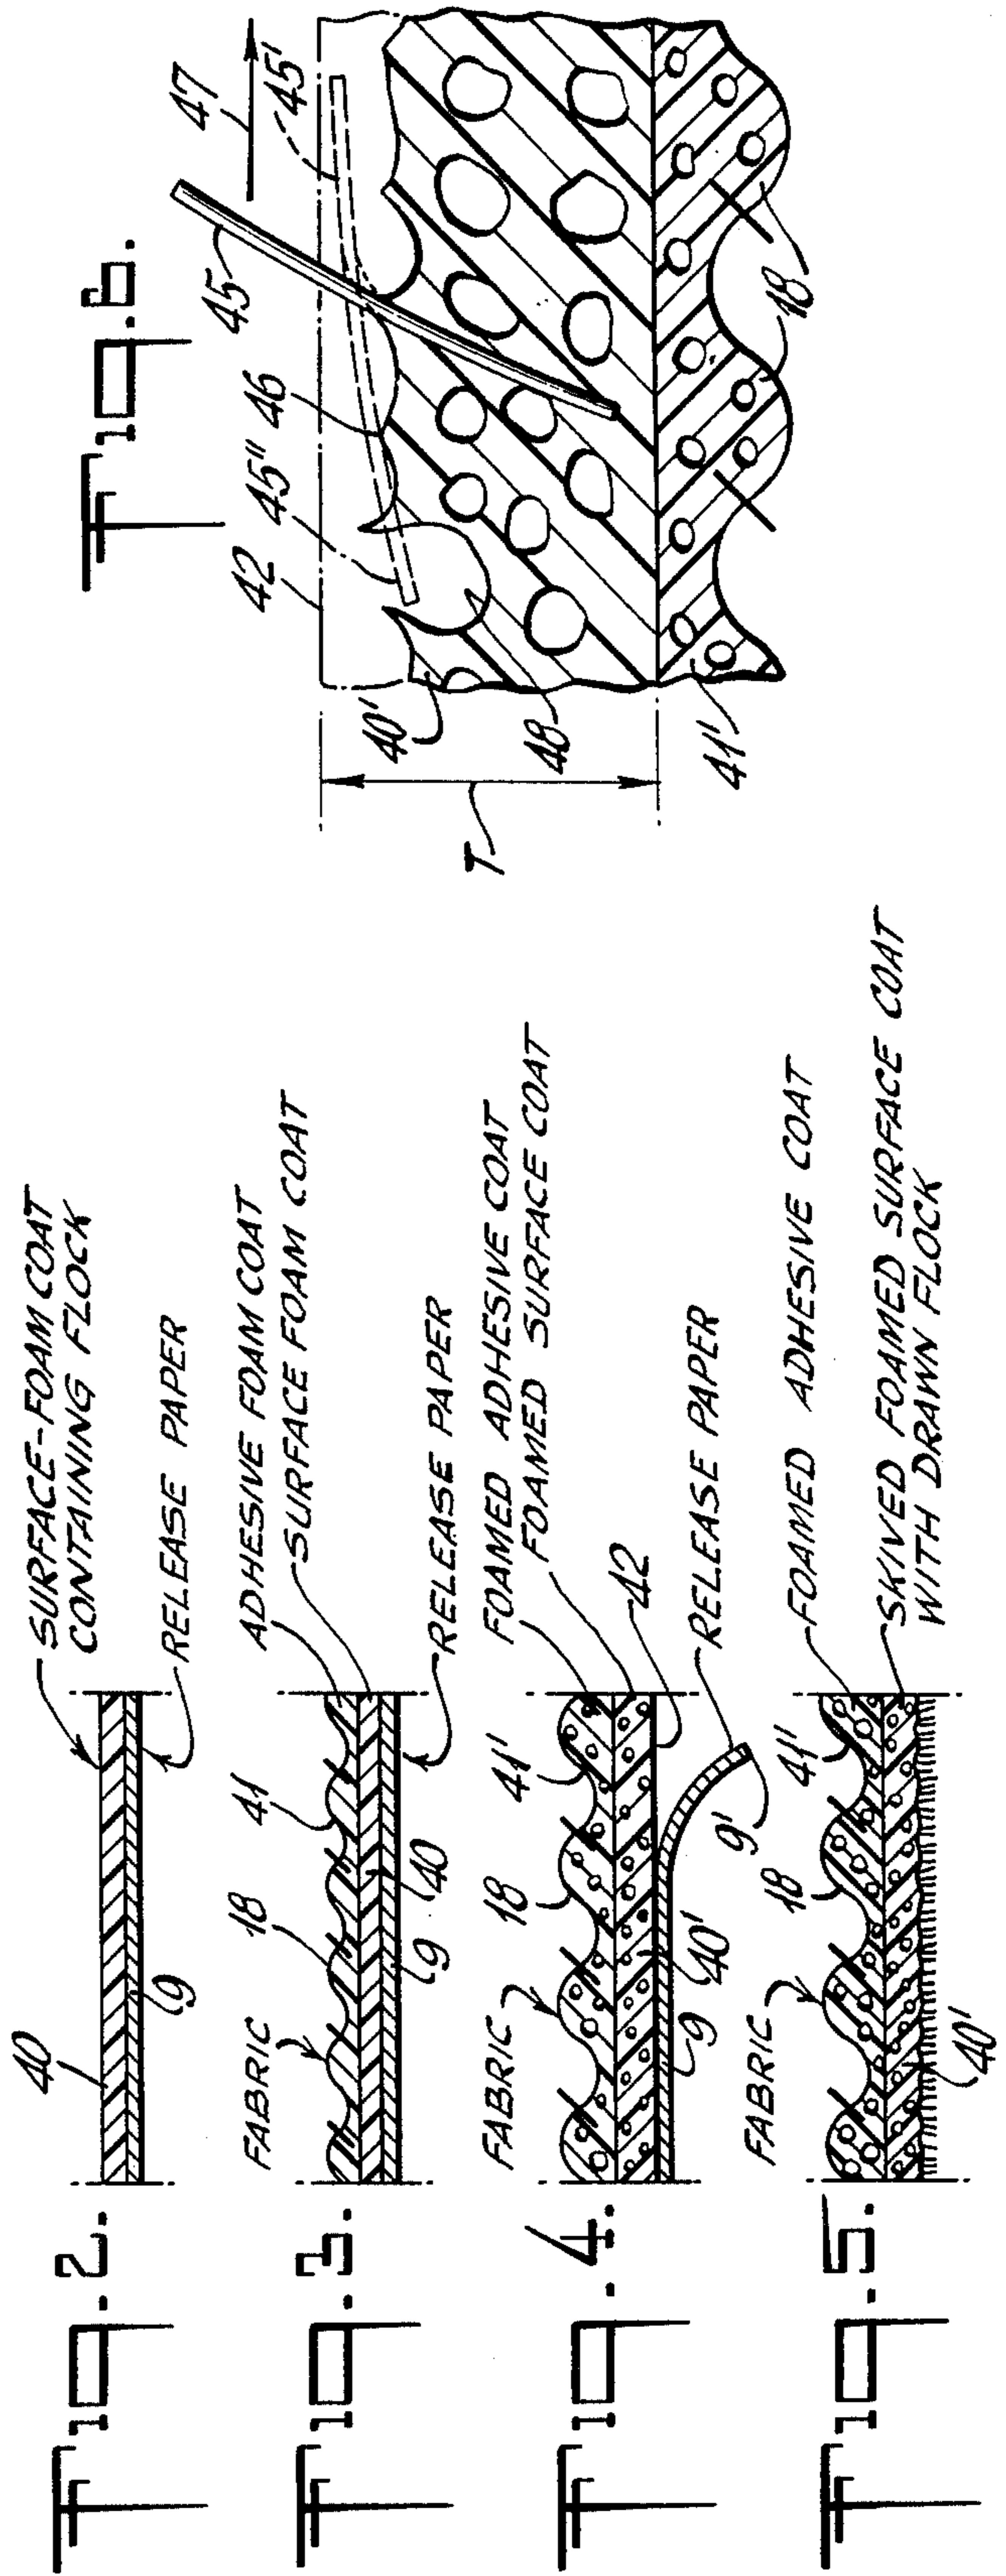 Fig. 2.
40
9
SURFACE-FOAM COAT
CONTAINING FLOCK
RELEASE PAPER
Fig. 3.
FABRIC
18
41
9
40
ADHESIVE FOAM COAT
SURFACE FOAM COAT
RELEASE PAPER
Fig. 4.
FABRIC
18
41'
9
40'
9'
42
FOAMED ADHESIVE COAT
FOAMED SURFACE COAT
RELEASE PAPER
Fig. 5.
FABRIC
18
41'
40'
FOAMED ADHESIVE COAT
SKIVED FOAMED SURFACE COAT
WITH DRAWN FLOCK
Fig. 6.
T
40'
42
45"
46
45
47
45'
48
41'
18